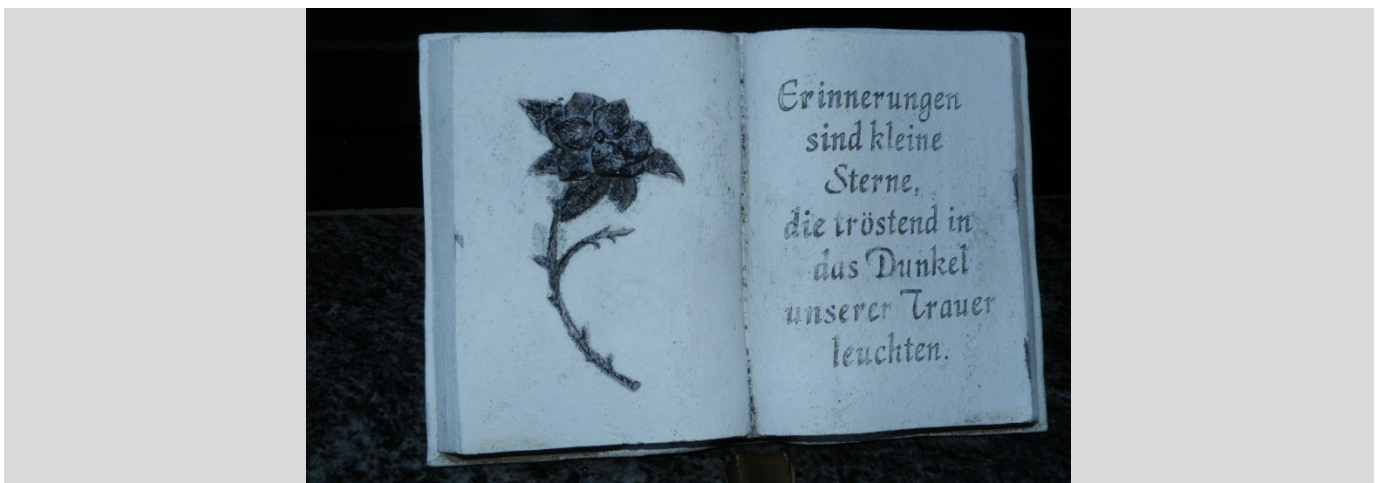 Erinnerungen
sind kleine
Sterne,
die tröstend in
das Dunkel
unserer Trauer
leuchten.